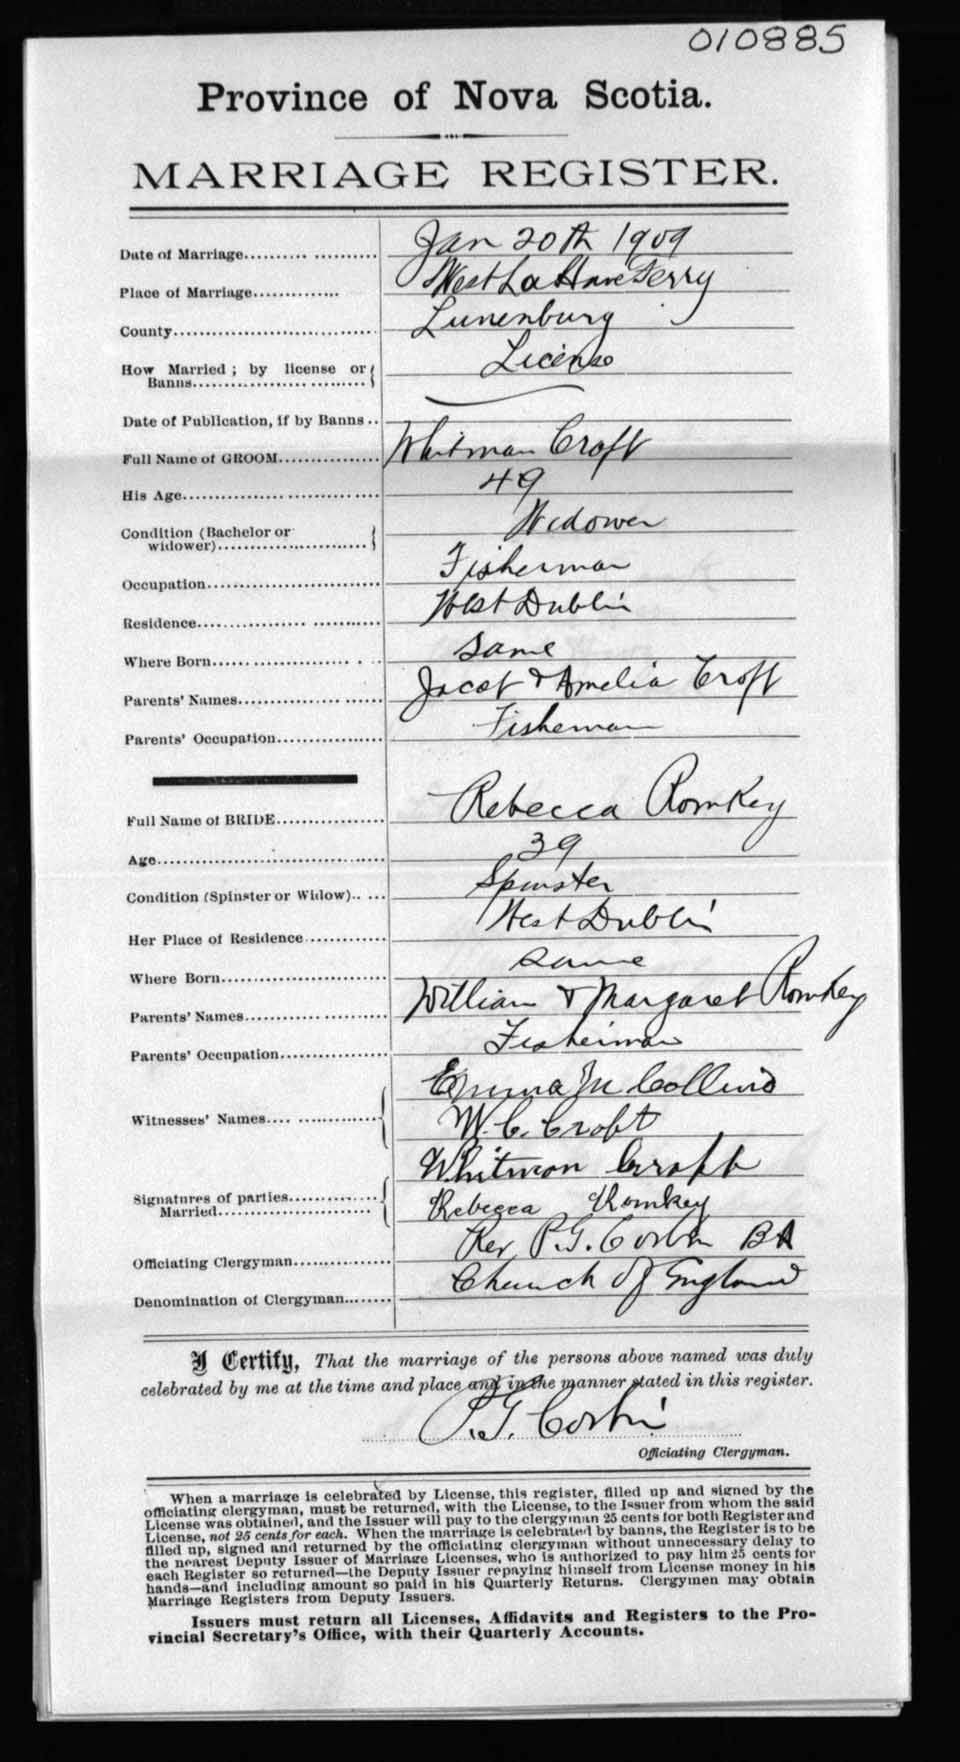 010885
Province of Nova Scotia.
MARRIAGE REGISTER.
Date of Marriage Jan 20th 1909
Place of Marriage West LaHave Ferry
County Lunenburg
How Married ; by license or
Banns License
Date of Publication, if by Banns
Full Name of GROOM Whitman Croft
His Age 49
Condition (Bachelor or
widower) Widower
Occupation Fisherman
Residence West Dublin
Where Born same
Parents' Names Jacob & Amelia Croft
Parents' Occupation Fisherman
Full Name of BRIDE Rebecca Romkey
Age 39
Condition (Spinster or Widow) Spinster
Her Place of Residence West Dublin
Where Born same
Parents' Names William & Margaret Romkey
Parents' Occupation Fisherman
Witnesses' Names Emma M Collins
W. C. Croft
Signatures of parties
Married Whitman Croft
Rebecca Romkey
Officiating Clergyman Rev P.G. Corbin BA
Denomination of Clergyman Church of England
I Certify, That the marriage of the persons above named was duly
celebrated by me at the time and place and in the manner stated in this register.
P.G. Corbin
Officiating Clergyman.
When a marriage is celebrated by License, this register, filled up and signed by the
officiating clergyman, must be returned, with the License, to the Issuer from whom the said
License was obtained, and the Issuer will pay to the clergyman 25 cents for both Register and
License, not 25 cents for each. When the marriage is celebrated by banns, the Register is to be
filled up, signed and returned by the officiating clergyman without unnecessary delay to
the nearest Deputy Issuer of Marriage Licenses, who is authorized to pay him 25 cents for
each Register so returned—the Deputy Issuer repaying himself from License money in his
hands—and including amount so paid in his Quarterly Returns. Clergymen may obtain
Marriage Registers from Deputy Issuers.
Issuers must return all Licenses, Affidavits and Registers to the Pro-
vincial Secretary's Office, with their Quarterly Accounts.